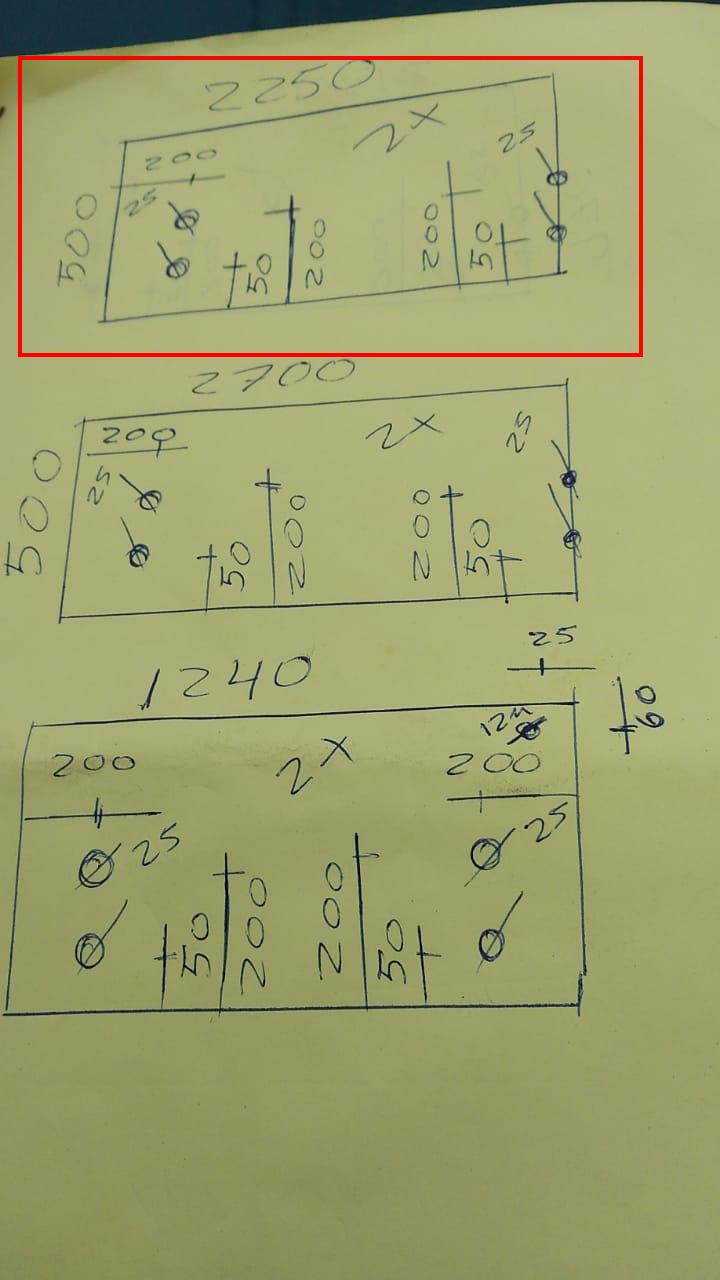 2250
200 2x 25
500 25
50 200 200 50
2700
200 2x 25
500 25
50 200 200 50
25
1240
60
12
200 2x 200
25 25
50 200 200 50